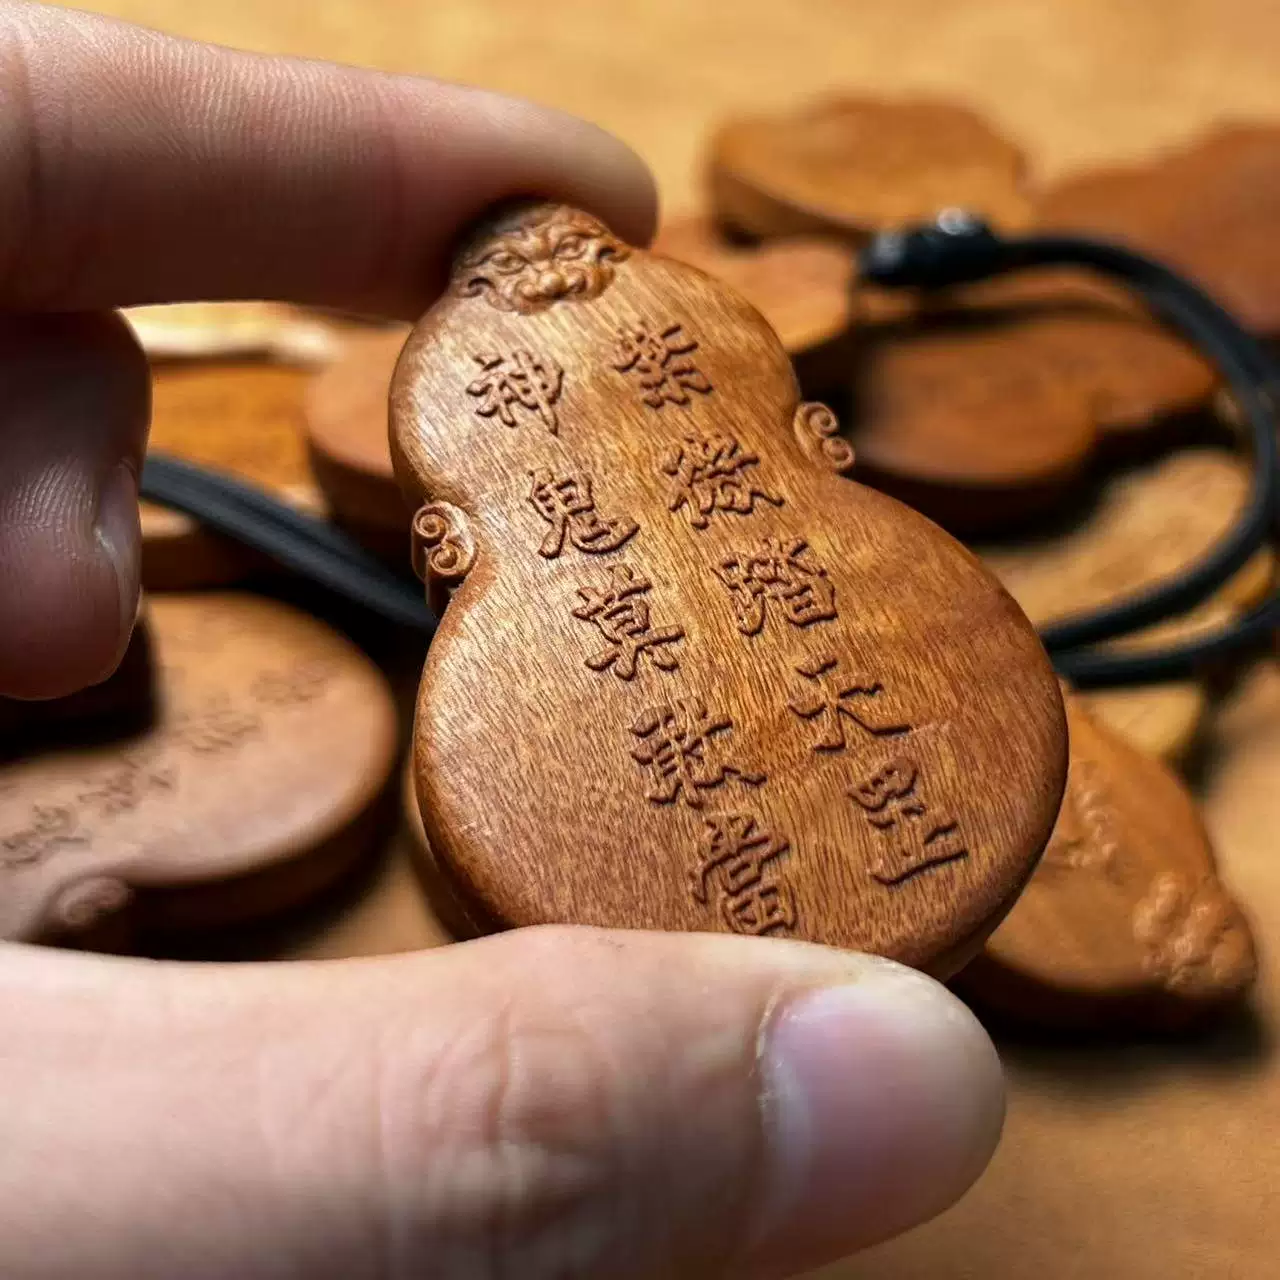 紫微踏天罡
神鬼莫敢當